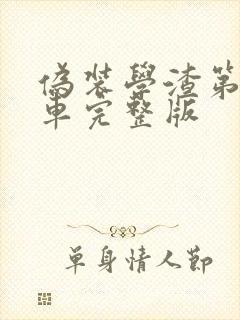 偽裝學渣第
車完整版
單身情人節